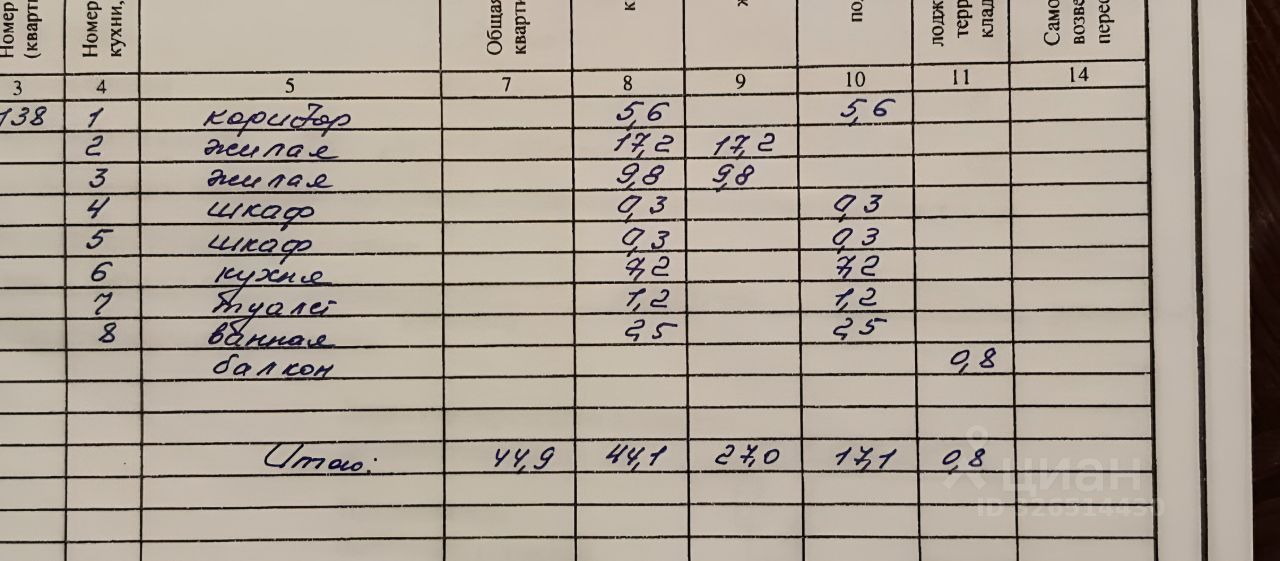 Номер (кварти
Номер кухни,
Общая кварти
к
ж
по
лодж терр клад
Само возве перес
3 4 5 7 8 9 10 11 14
138 1 коридор 5,6 5,6
2 жилая 17,2 17,2
3 жилая 9,8 9,8
4 шкаф 0,3 0,3
5 шкаф 0,3 0,3
6 кухня 7,2 7,2
7 туалет 1,2 1,2
8 ванная 2,5 2,5
балкон 0,8
Итого: 44,9 44,1 27,0 17,1 0,8
циан
ID 326514430